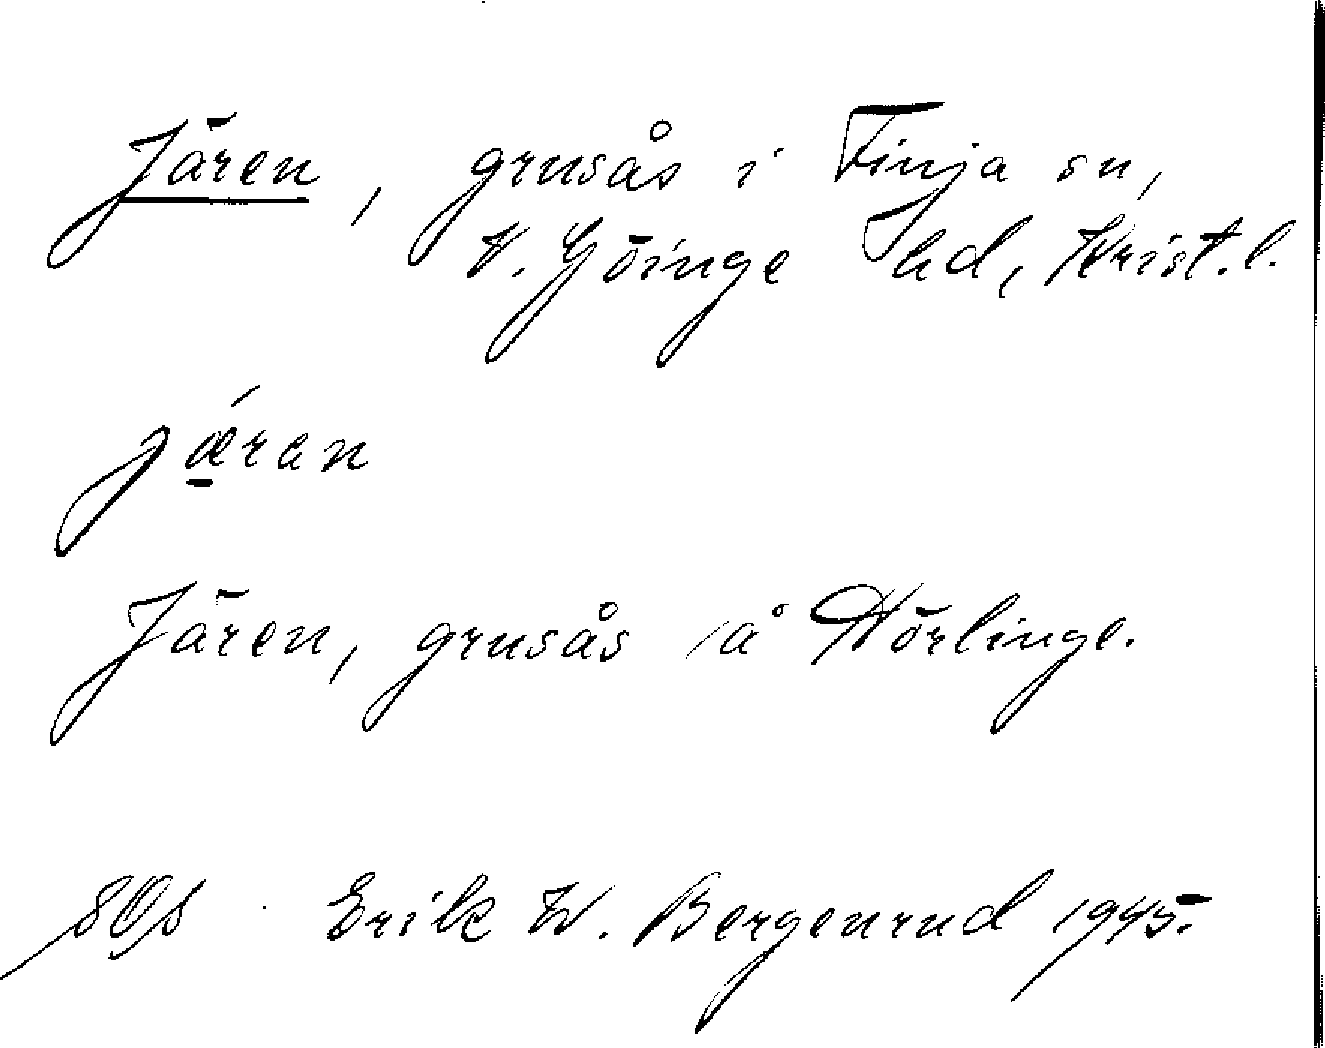 Jären, grusås i Finja sn,
V. Göinge hd, Krist. l.
jǽran
Jären, grusås å Hörlinge.
Erik W. Bergenrud 1945.